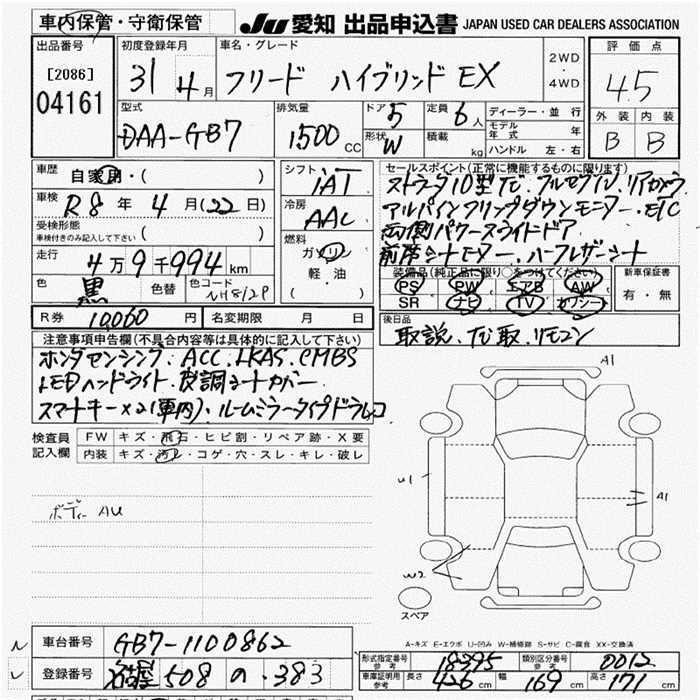 車内保管・守衛保管
JU 愛知 出品申込書 JAPAN USED CAR DEALERS ASSOCIATION
出品番号 初度登録年月 車名・グレード 評価点
[2086] 31 4月 フリード ハイブリッド EX 2WD・4WD 4.5
04161
型式 排気量 ドア 5 定員 6人 ディーラー・並行 外装 内装
DAA-GB7 1500cc 形状 W 積載 kg モデル年式 年 B B
ハンドル 左・右
車歴 自家用・( ) シフト iAT セールスポイント(正常に機能するものに限ります)
車検 R8年 4月(22日) 冷房 AAC ストラーダ10型TV.フルセグTV.リアカメラ
受検形態 アルパインフリップダウンモニター.ETC
車検付きのみ記入して下さい ( ) 燃料 両側パワースライドドア
走行 4万9千994km ガソリン 前席シートヒーター.ハーフレザーシート
色 黒 色替 色コード NH812P 軽油 ( ) 装備品(純正品に限り○をつけてください) 新車保証書
PS PW エアB AW 有・無
SR ナビ TV カワシート
R券 10,060円 名変期限 月 日 後日品
取説.TV取.リモコン
注意事項申告欄(不具合内容等は具体的に記入して下さい)
ホンダセンシング.ACC.LKAS.CMBS
LEDヘッドライト.皮調シートカバー
スマートキー×2(車内).ルームミラータイプドラレコ
A1
検査員 FW キズ・飛石・ヒビ割・リペア跡・X要
記入欄 内装 キズ・汚レ・コゲ・穴・スレ・キレ・破レ
U1
A1
ボディー AU
W2
スペア
A-キズ E-エクボ U-凹み W-補修跡 S-サビ C-腐食 XX-交換済
車台番号 GB7-1100862
形式指定番号 参考 18395 類別区分番号 参考 0012
登録番号 名古屋 508 の ・383
車庫証明用 参考 長さ 426cm 幅 169cm 高さ 171cm